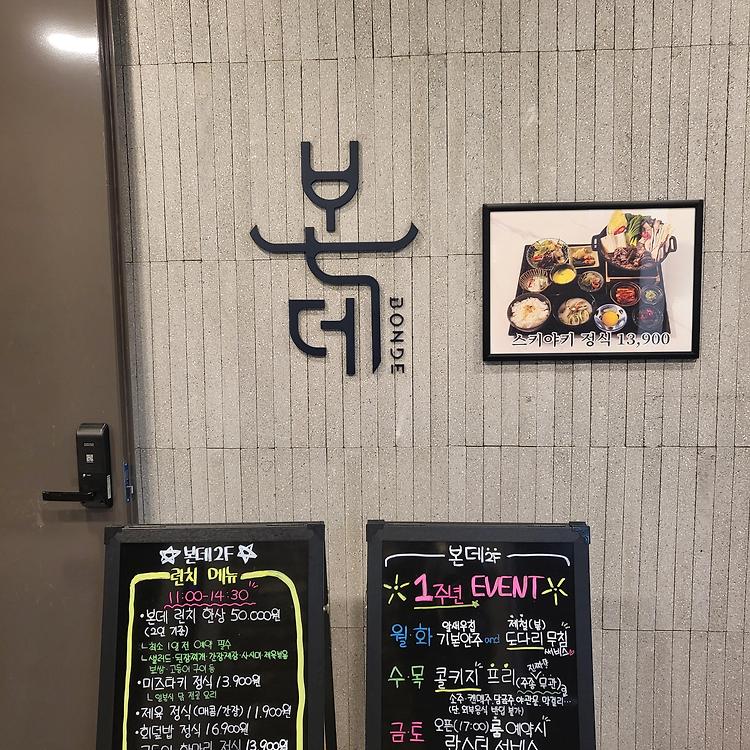 본데
BONDE
스키야키 정식 13,900
본데 2F
런치 메뉴
11:00-14:30
• 본데 런치 한상 50.000원
(2인 기준)
ㄴ최소 1일 전 예약 필수
ㄴ샐러드·된장찌개·간장게장·사시미·제육볶음
보쌈·고등어 구이 등
• 미즈타키 정식 13.900원
ㄴ일본식 닭 전골 요리
• 제육 정식 (매콤/간장) 11.900원
• 회덮밥 정식 16.900원
정식 13.900원
본데 2F
1주년 EVENT
월·화 새우전 기본안주 and 제철(봄) 도다리 무침 서비스
수·목 콜키지 프리 (주종 무관)
소주·맥주·담금주·야관문·막걸리...
(단, 외부음식 반입 불가)
금·토 오픈(17:00) 룸 예약시
랍스터 서비스